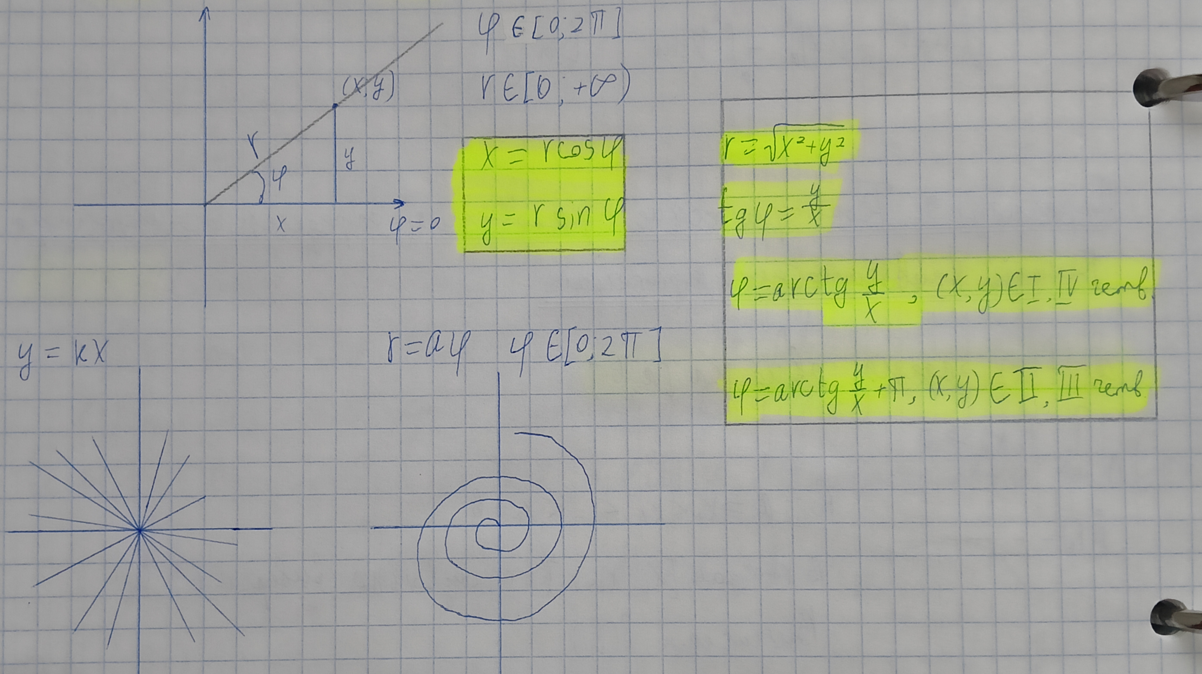 φ ∈ [0; 2π]
(x, y)
r ∈ [0; +∞)
r
φ
y
x
φ = 0
x = r cos φ
y = r sin φ
r = √x² + y²
tg φ = y/x
φ = arctg y/x, (x, y) ∈ I, IV четв.
φ = arctg y/x + π, (x, y) ∈ II, III четв
y = kx
r = aφ φ ∈ [0; 2π]